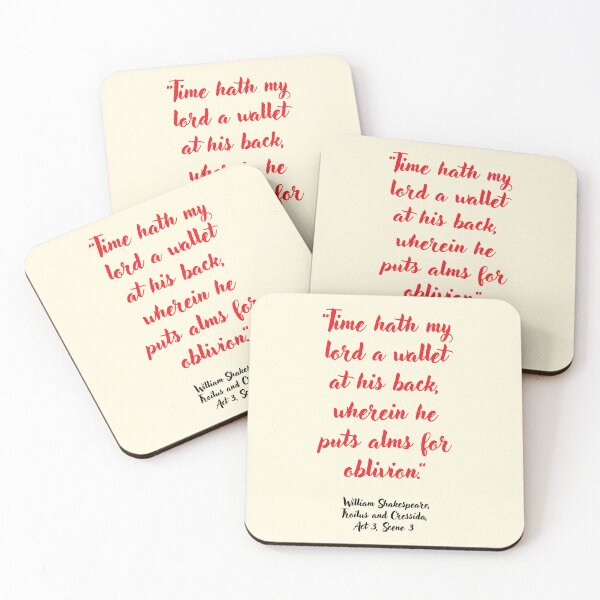 "Time hath my
lord a wallet
at his back,
wherein he
for
"Time hath my
lord a wallet
at his back,
wherein he
puts alms for
oblivion."
"Time hath my
lord a wallet
at his back,
wherein he
puts alms for
oblivion."
William
Troilus and
Act 3,
"Time hath my
lord a wallet
at his back,
wherein he
puts alms for
oblivion."
William Shakespeare,
Troilus and Cressida,
Act 3, Scene 3